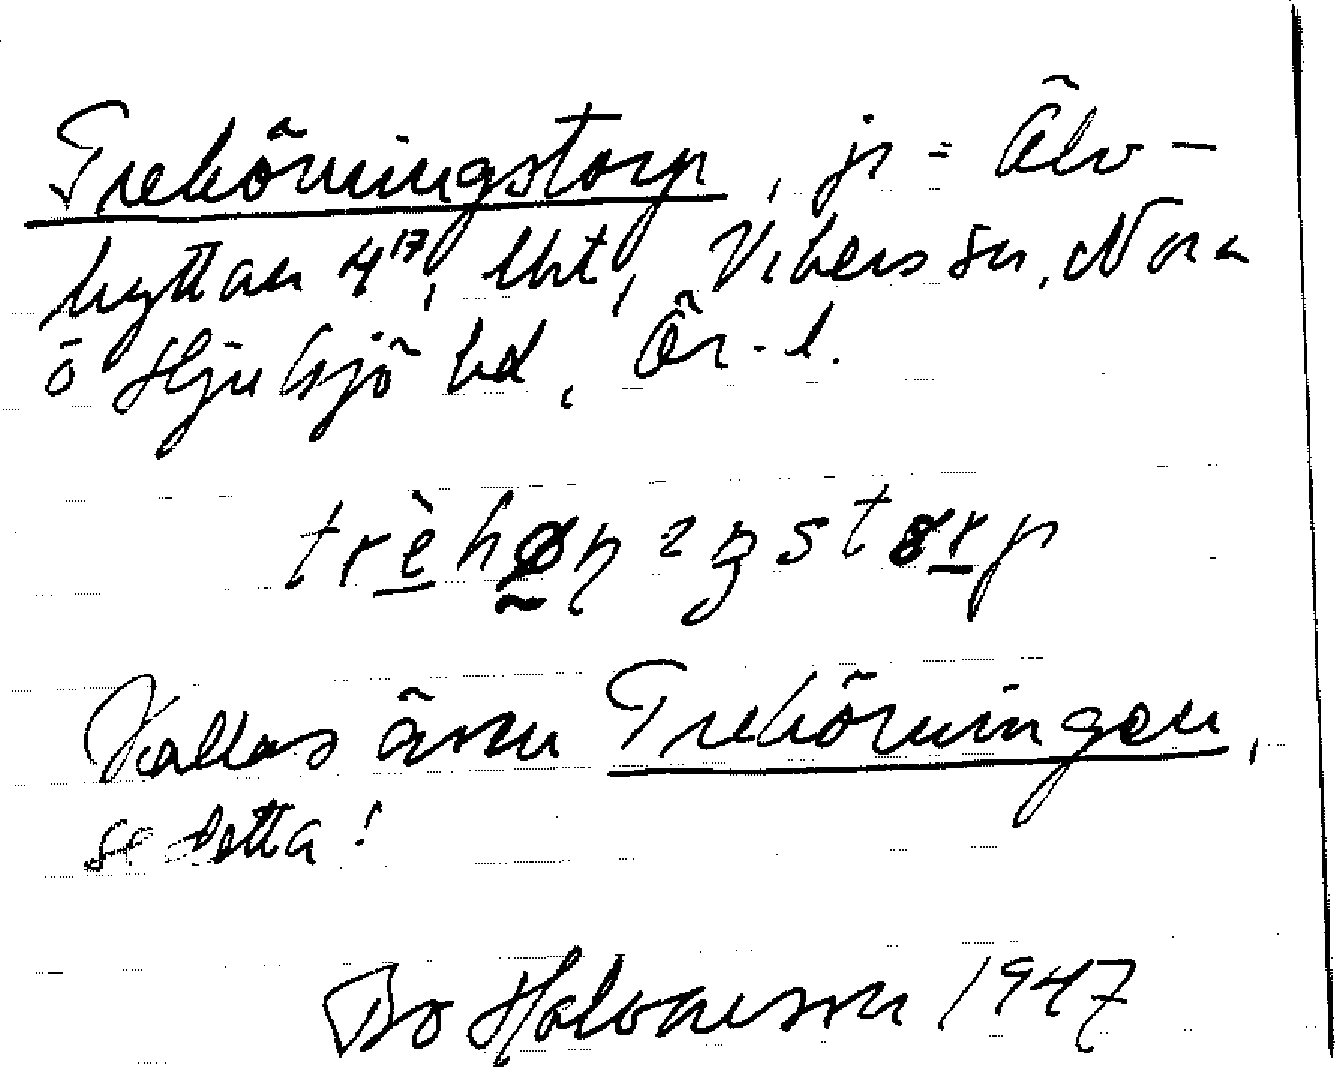 Trehörningstorp, jr = Älv-
hyttan 4¹⁷, lht, Vikers sn, Nora
o Hjulsjö hd, Ör. l.
Kallas även Trehörningen,
se detta!
Bo Halvarsson 1947